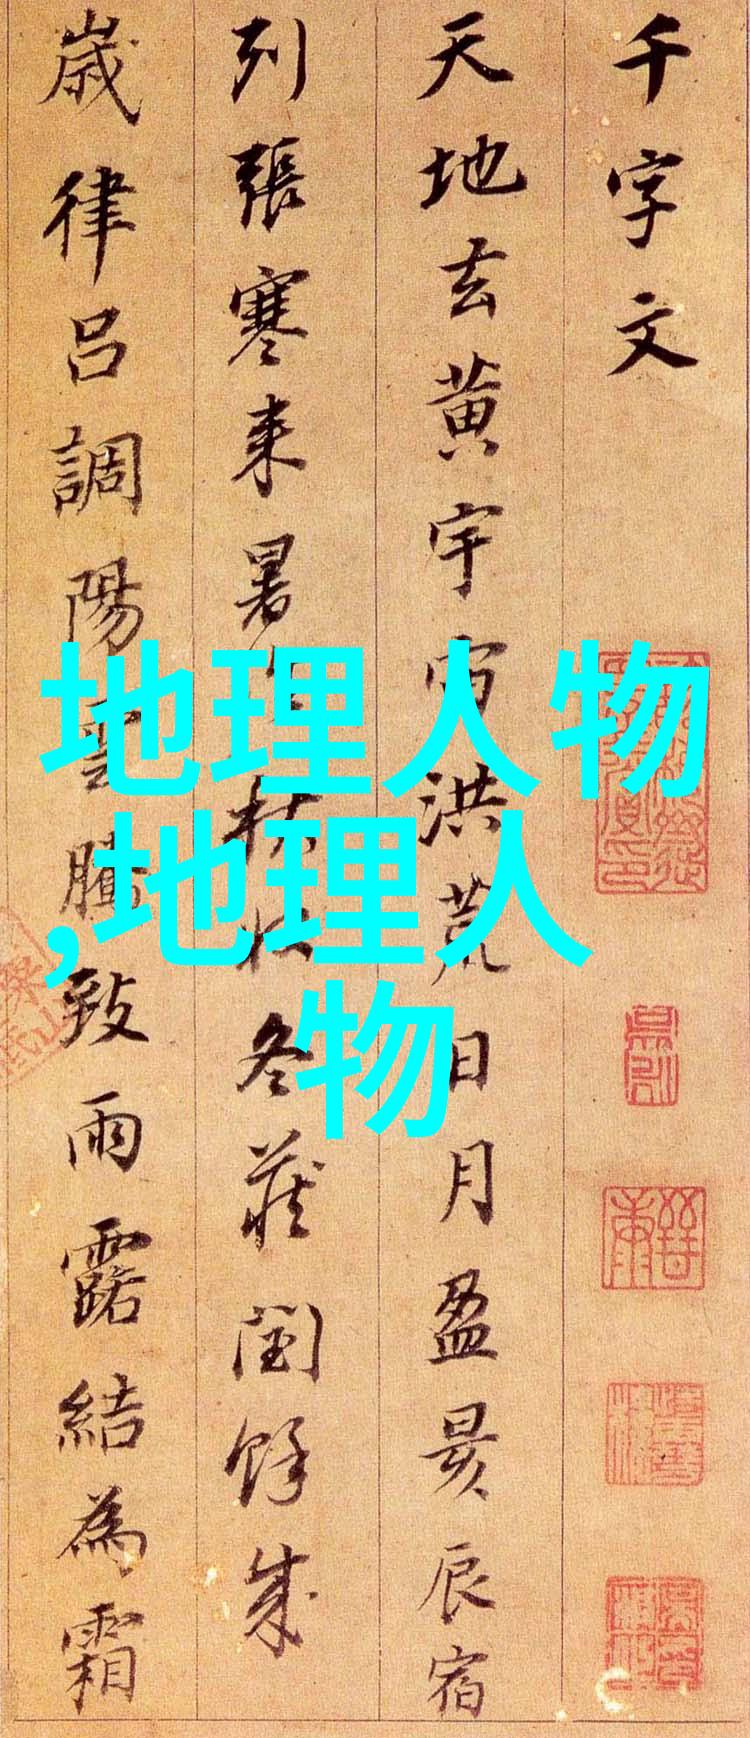 千字文
天地玄黄宇宙洪荒日月盈昃辰宿
列張寒来暑往秋收冬蔵閏餘成
歳律吕調陽雲騰致雨露結為霜
地理人物
,地理人
物